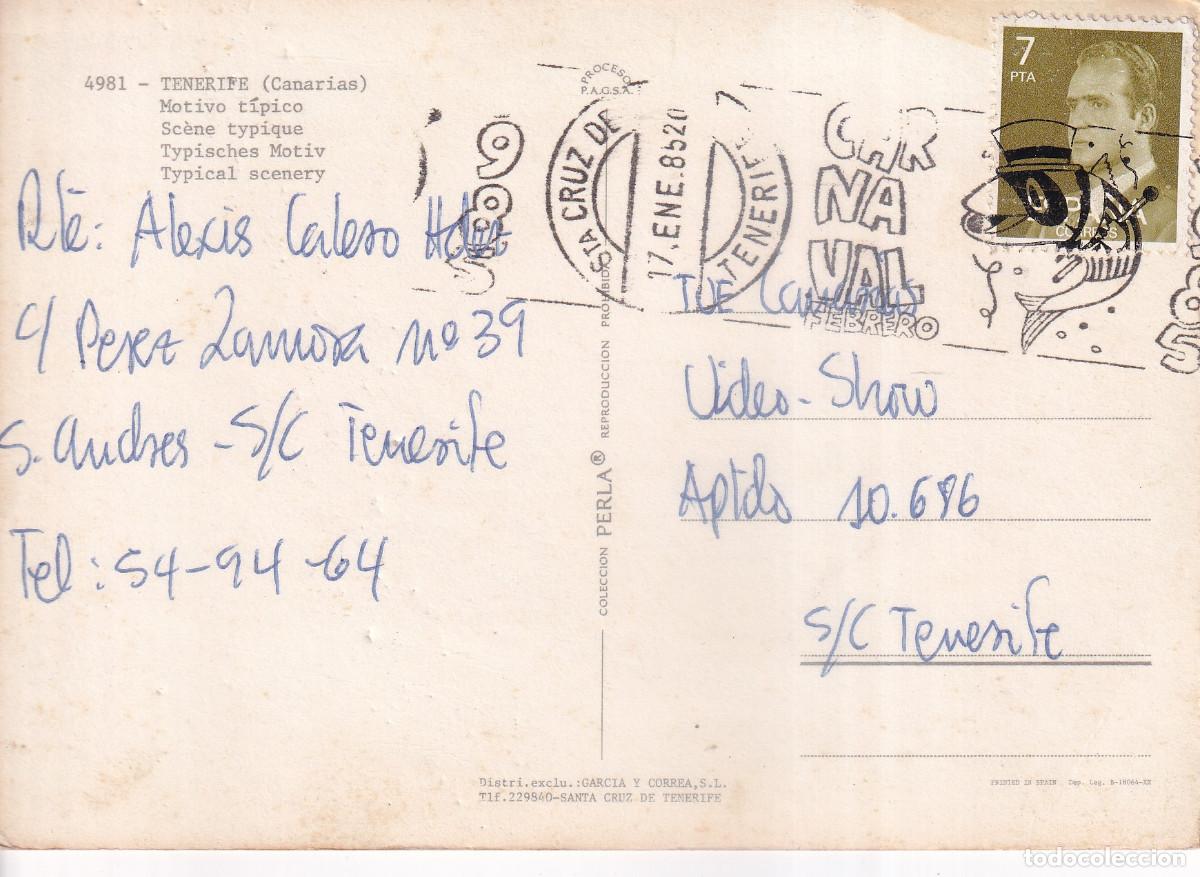 4981 - TENERIFE (Canarias)
Motivo típico
Scène typique
Typisches Motiv
Typical scenery
Rte: Alexis Calero Hdez
C/ Perez Zamora nº 39
S. Andres - S/C Tenerife
Tel: 54-94-64
PROCESO
P.A.G.S.A.
STA CRUZ DE TENERIFE
17.ENE.8520
CAR
NA
VAL
FEBRERO
1985
7
PTA
ESPAÑA
CORREOS
TVE Canarias
Video-Show
Aptdo 10.696
S/C Tenerife
COLECCION PERLA® REPRODUCCION PROHIBIDA
Distri.exclu.:GARCIA Y CORREA,S.L.
Tlf.229840-SANTA CRUZ DE TENERIFE
PRINTED IN SPAIN Dep. Leg. B-18064-XX
todocoleccion